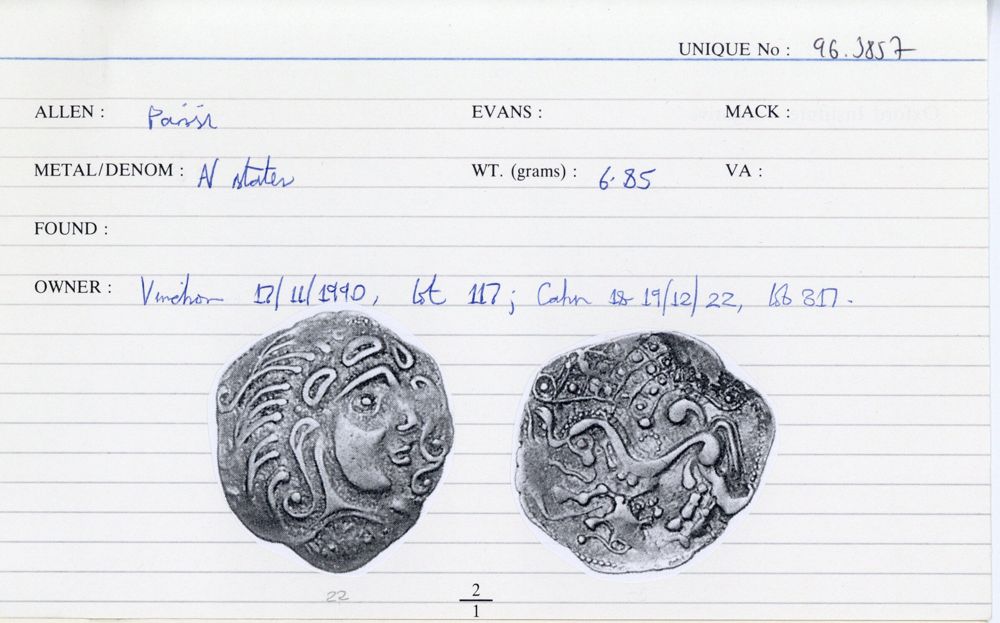 UNIQUE No : 96.3857
ALLEN : Parisi EVANS : MACK :
METAL/DENOM : AV stater WT. (grams) : 6.85 VA :
FOUND :
OWNER : Vinchon 17/11/1990, lot 117; Cahn 18 19/12/22, lot 317.
22
2
1